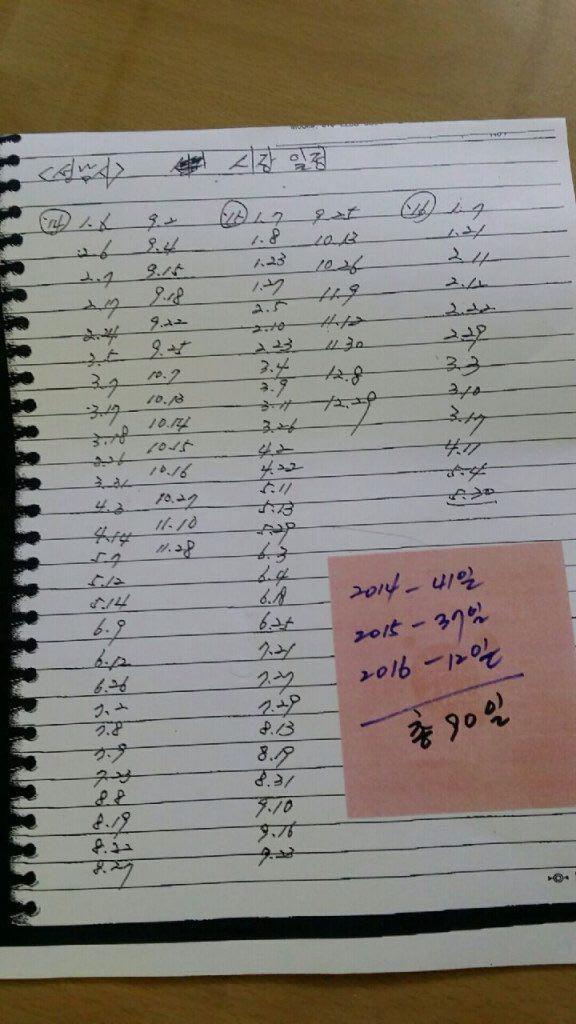 <성남시> 시장 일정
'14 1.6
2.6
2.7
2.17
2.24
3.5
3.7
3.17
3.18
3.26
3.31
4.3
4.14
5.7
5.12
5.14
6.9
6.12
6.26
7.2
7.8
7.9
7.23
8.8
8.19
8.22
8.27
9.2
9.4
9.15
9.18
9.22
9.25
10.7
10.13
10.14
10.15
10.16
10.27
11.10
11.28
'15 1.7
1.8
1.23
1.27
2.5
2.10
2.23
3.4
3.9
3.11
3.26
4.2
4.22
5.11
5.13
5.29
6.3
6.4
6.18
6.25
7.21
7.27
7.29
8.13
8.19
8.31
9.10
9.16
9.23
9.25
10.13
10.26
11.9
11.12
11.30
12.8
12.29
'16 1.7
1.21
2.11
2.12
2.22
2.29
3.3
3.10
3.17
4.17
5.4
5.30
2014 - 41일
2015 - 37일
2016 - 12일
총 90일